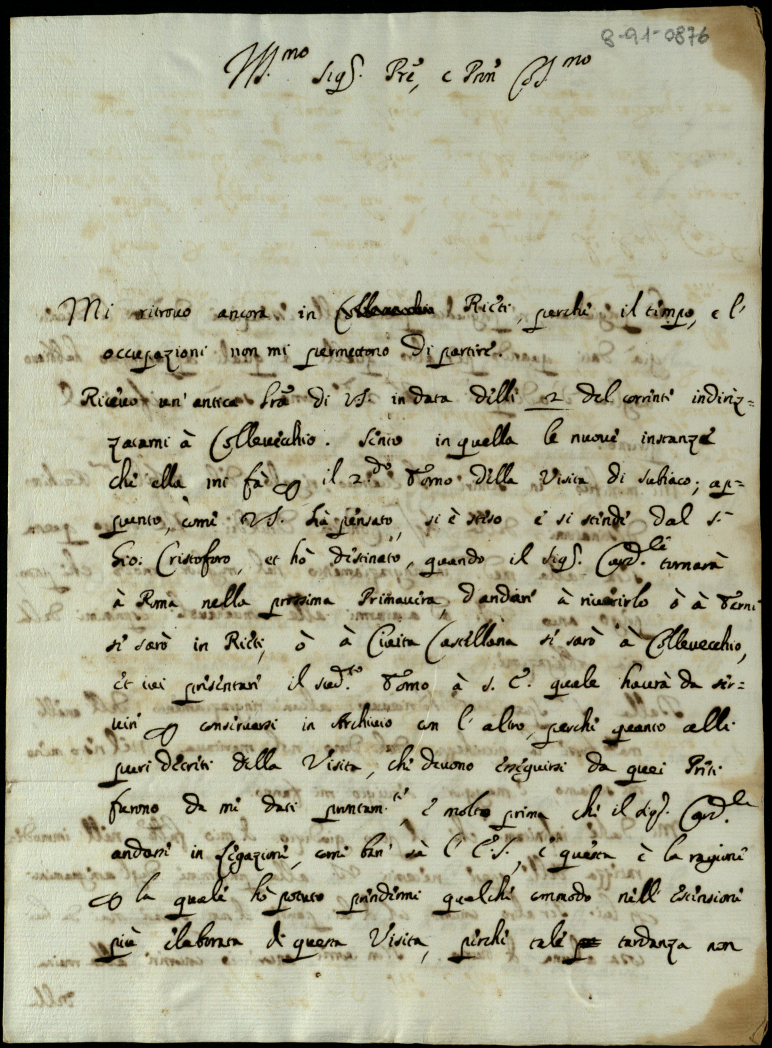 8-91-0876
Ill.mo Sig.r Pre, e Prōn Col.mo
Mi ritrovo ancora in Collevecchio Rieti, perche il tempo, e l'
occupazioni non mi permettono di partire.
Ricevo un' antica lrā di VS. in data delli 2 del corrente indiriz=
zatami à Collevecchio. Sento in quella le nuove instanze
che ella mi fà p il 2.do Tomo della Visita di Subiaco; ap=
punto, come VS. hà pensato, si è steso e si stende dal S.r
Gio: Cristoforo, et hò destinato, quando il Sig.r Card.le tornarà
à Rmā nella prossima Primavera, d'andare à riverirlo ò à Terni
se sarò in Rieti, ò à Civita Castellana se sarò à Collevecchio,
et ivi presentare il sud.to Tomo à S. E. quale haverà da ser=
vire p conservarsi in Archivio con l'altro, perche quanto alli
puri decreti della Visita, che devono esseguirsi da quei Preti
furono da me dati puntam.te, e molto prima che il Sig.r Card.le
andasse in Legazione, come ben sà l' E.S., e questa è la ragione
p la quale hò potuto prendermi qualche commodo nell' estensione
più elaborata di questa Visita, perche tale tardanza non